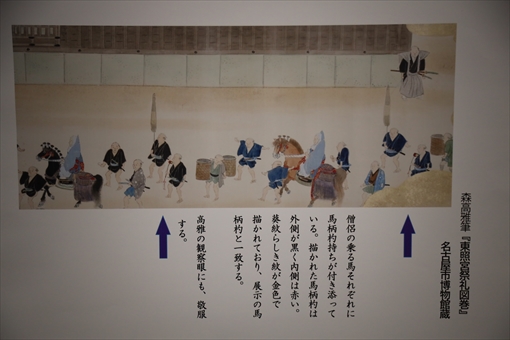 森高雅筆『東照宮祭礼図巻』
名古屋市博物館蔵
僧侶の乗る馬それぞれに
馬柄杓持ちが付き添って
いる。描かれた馬柄杓は
外側が黒く内側は赤い。
葵紋らしき紋が金色で
描かれており、展示の馬
柄杓と一致する。
高雅の観察眼にも、敬服
する。